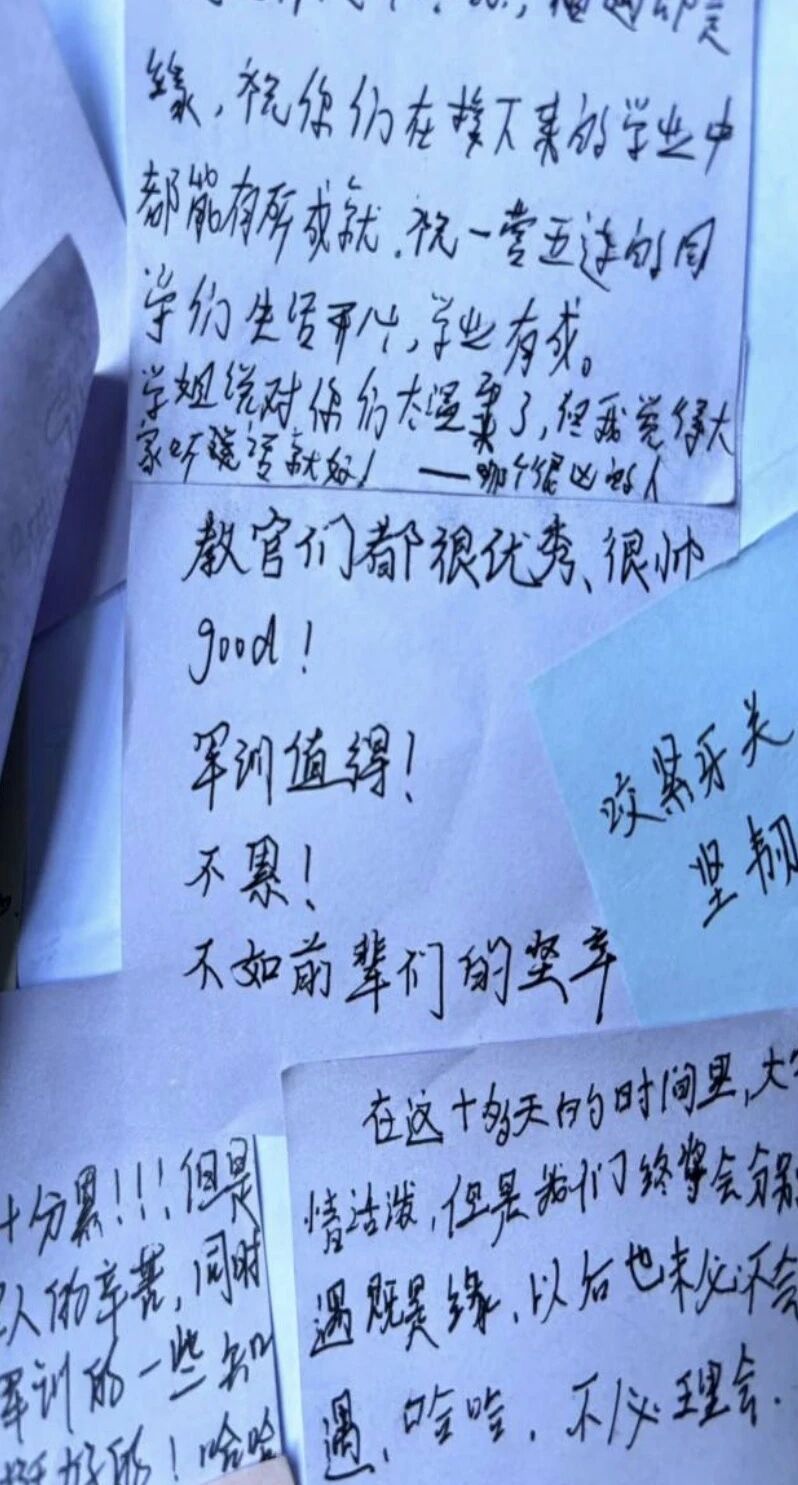 缘，祝你们在接下来的学业中
都能有所成就．祝一营五连的同
学们生活开心，学业有成。
学姐说对你们太温柔了，但我觉得大
家听话就好！ ——那个很凶的人
教官们都很优秀、很帅
good！
军训值得！
不累！
不如前辈们的坚辛
咬紧牙关
坚韧
在这十多天的时间里，大
情活泼，但是我们终将会分别
遇既是缘，以后也未必不会
遇，哈哈．不必理会．
十分累！！！但是
人的辛苦，同时
军训的一些知
挺好的！哈哈